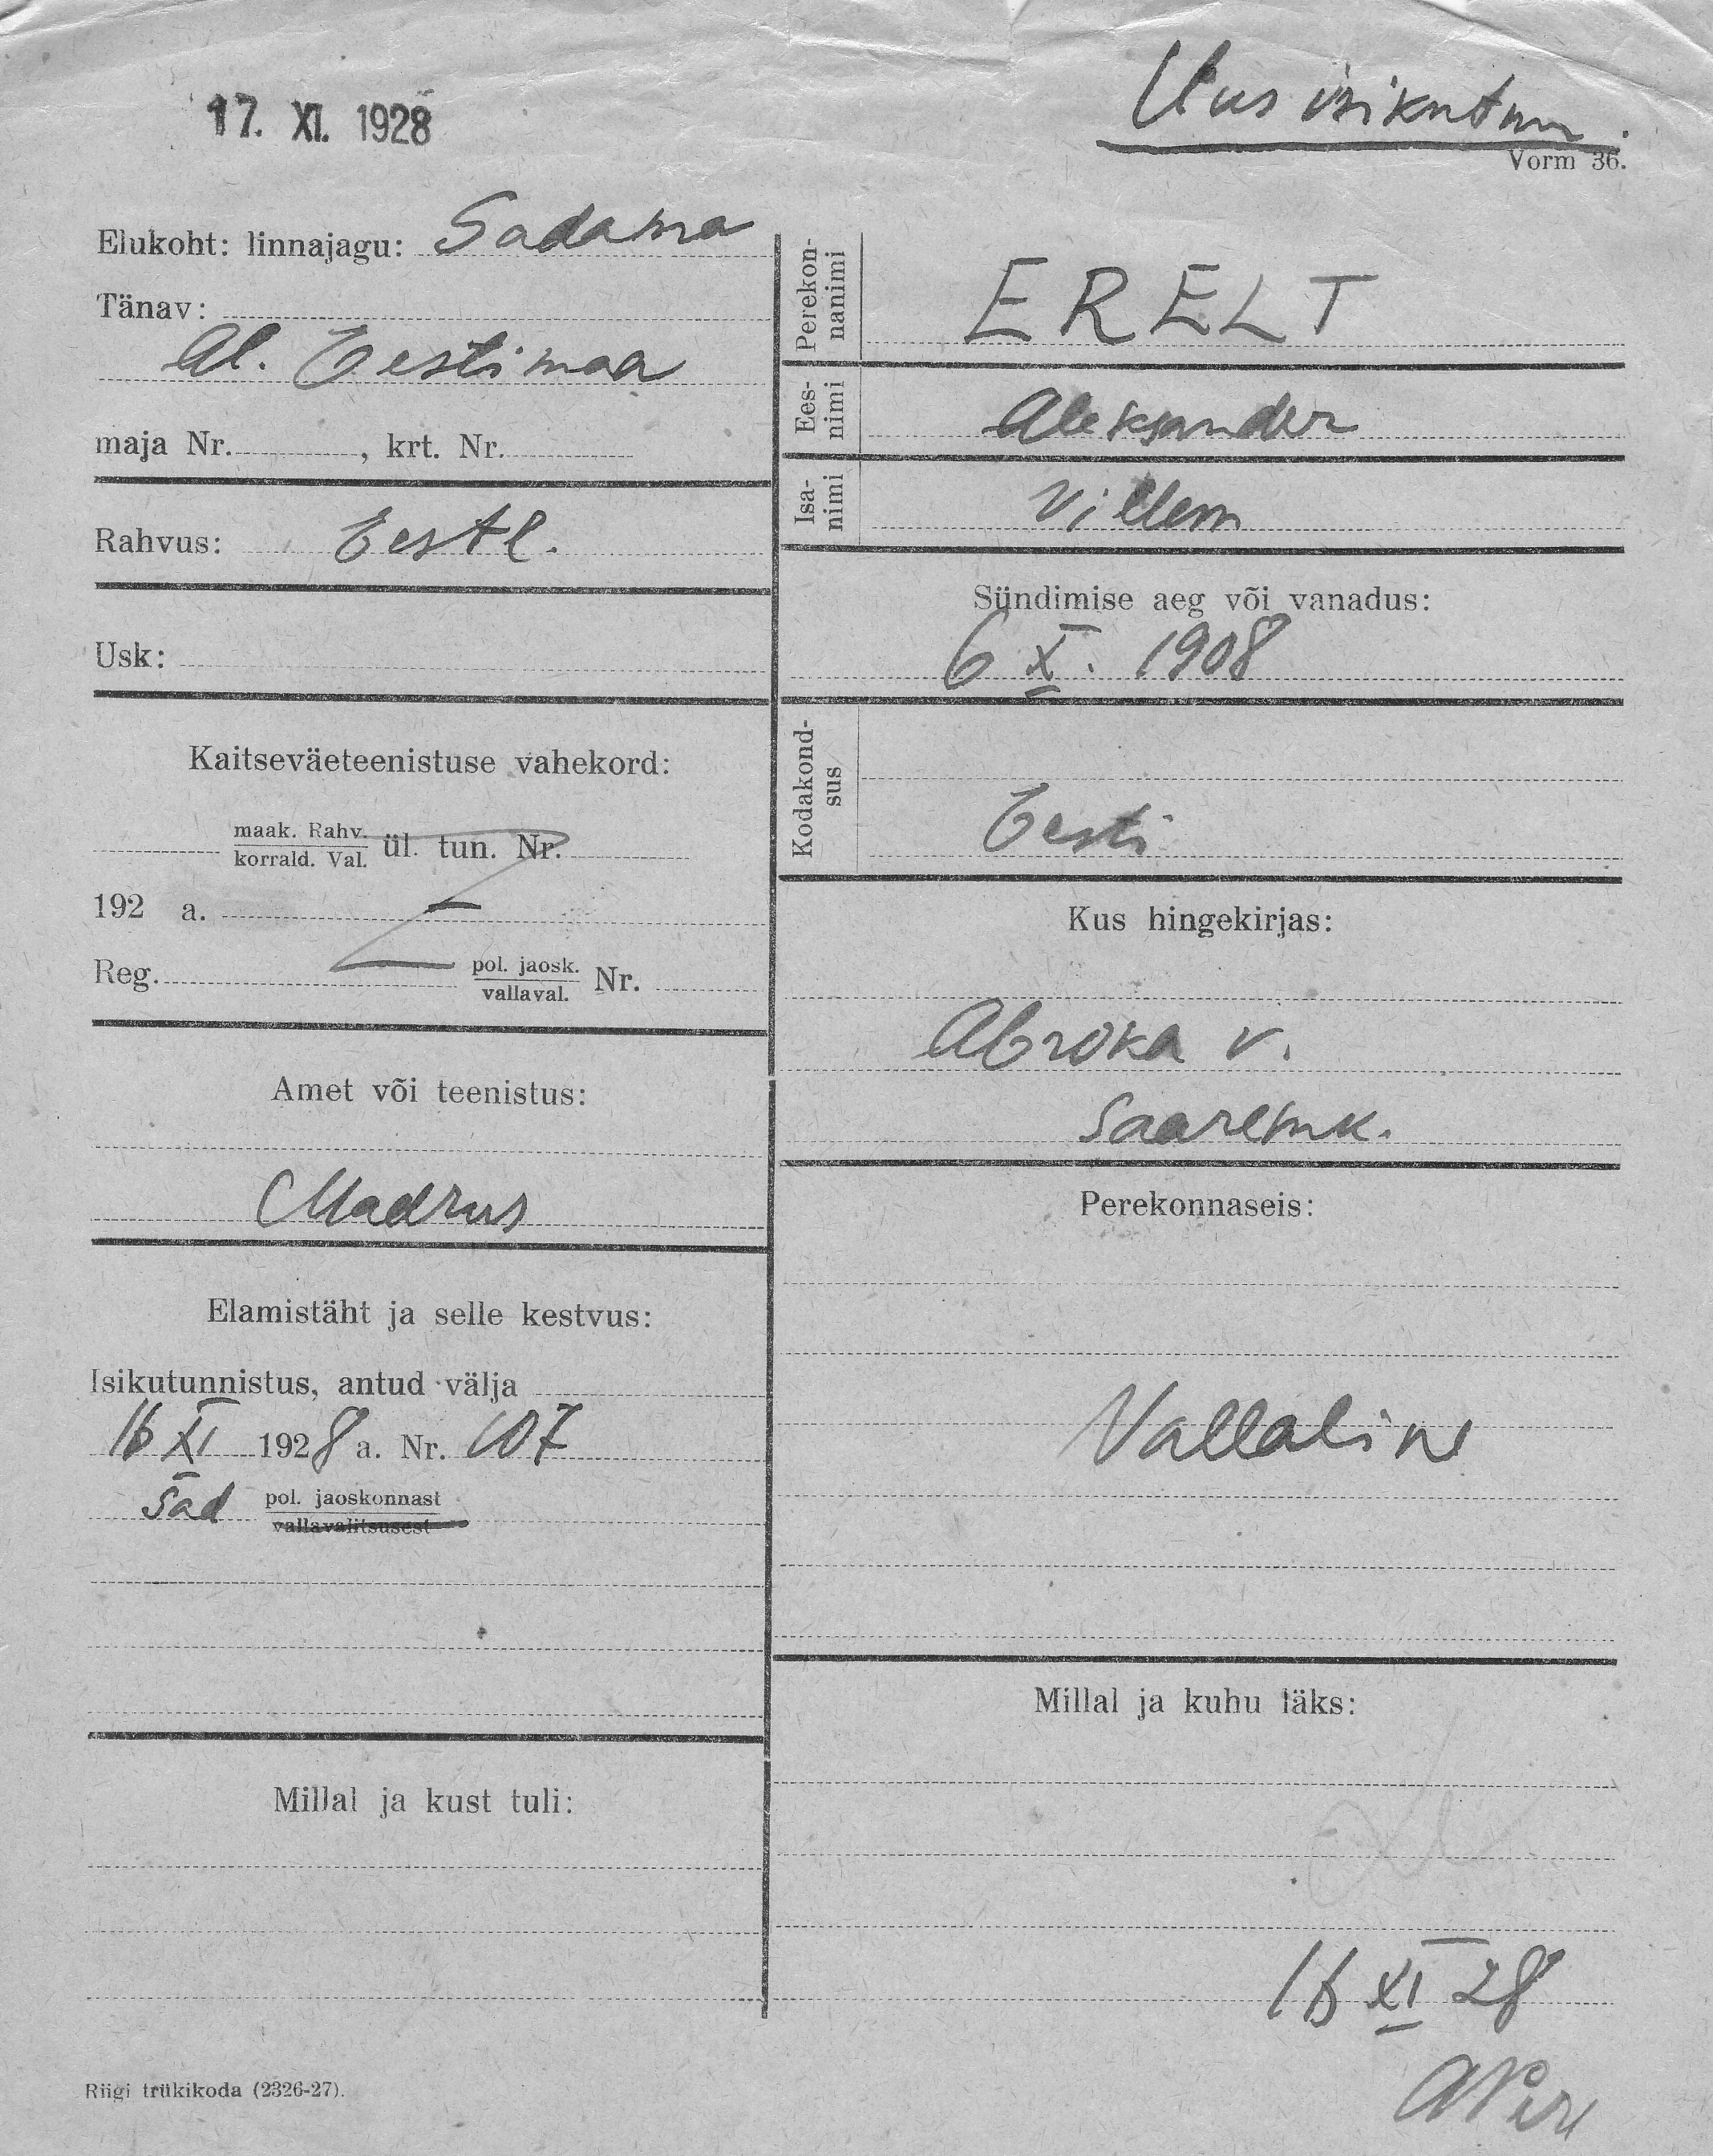 17. XI. 1928
Uus isikutun.
Vorm 36.
Elukoht: linnajagu: Sadama
Tänav:
Al. Eestimaa
maja Nr. , krt. Nr.
Rahvus: Eestl.
Usk:
Kaitseväeteenistuse vahekord:
maak. Rahv. ül. tun. Nr.
korrald. Val.
192 a. —
Reg. pol. jaosk. Nr.
vallaval.
Amet või teenistus:
Madrus
Elamistäht ja selle kestvus:
Isikutunnistus, antud välja
16 XI 1928 a. Nr. 107
Sad pol. jaoskonnast
vallavalitsusest
Millal ja kust tuli:
Perekon-
nanimi
ERELT
Ees-
nimi
Aleksander
Isa-
nimi
Villem
Sündimise aeg või vanadus:
6 X. 1908
Kodakond-
sus
Eesti
Kus hingekirjas:
Abroka v.
Saaremk.
Perekonnaseis:
Vallaline
Millal ja kuhu läks:
16 XI 28
Riigi trükikoda (2326-27).